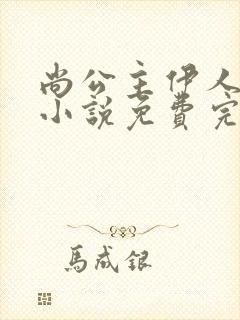 尚公主伊人
小说免费完
馬成銀